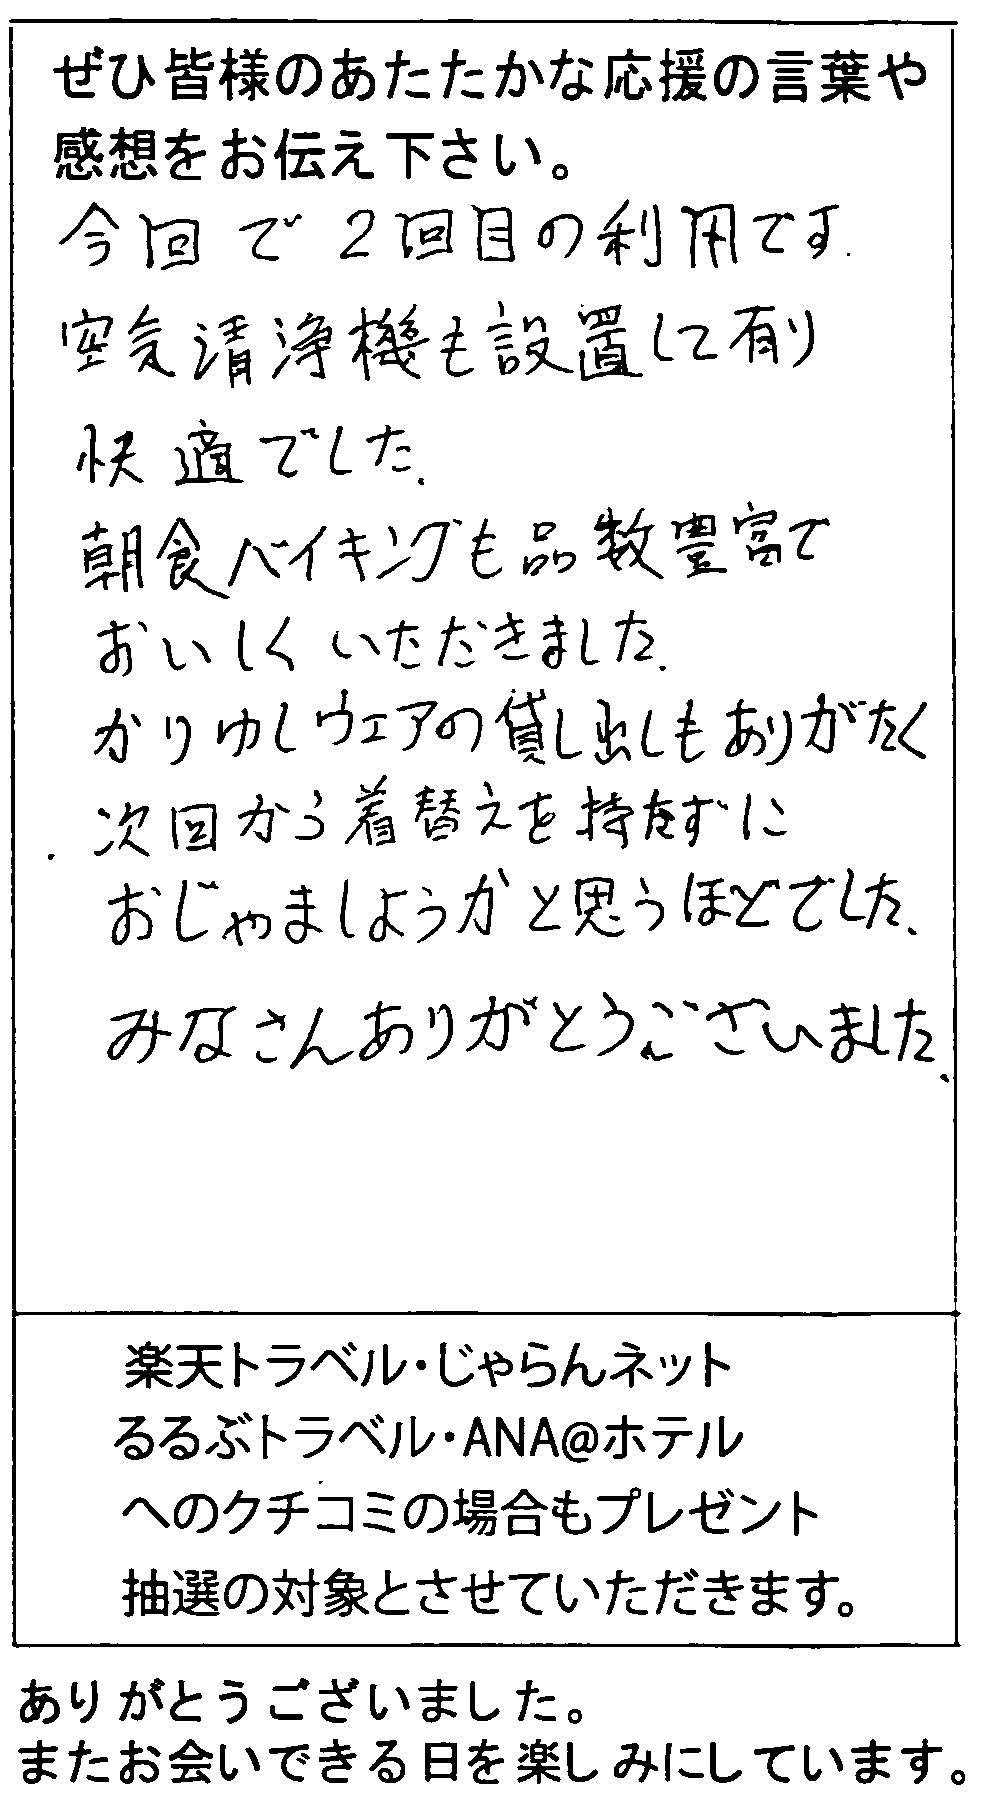 ぜひ皆様のあたたかな応援の言葉や
感想をお伝え下さい。
今回で2回目の利用です.
空気清浄機も設置して有り
快適でした.
朝食バイキングも品数豊富で
おいしくいただきました.
かりゆしウェアの貸し出しもありがたく
次回から着替えを持たずに
おじゃましようかと思うほどでした、
みなさんありがとうございました.
楽天トラベル・じゃらんネット
るるぶトラベル・ANA@ホテル
へのクチコミの場合もプレゼント
抽選の対象とさせていただきます。
ありがとうございました。
またお会いできる日を楽しみにしています。